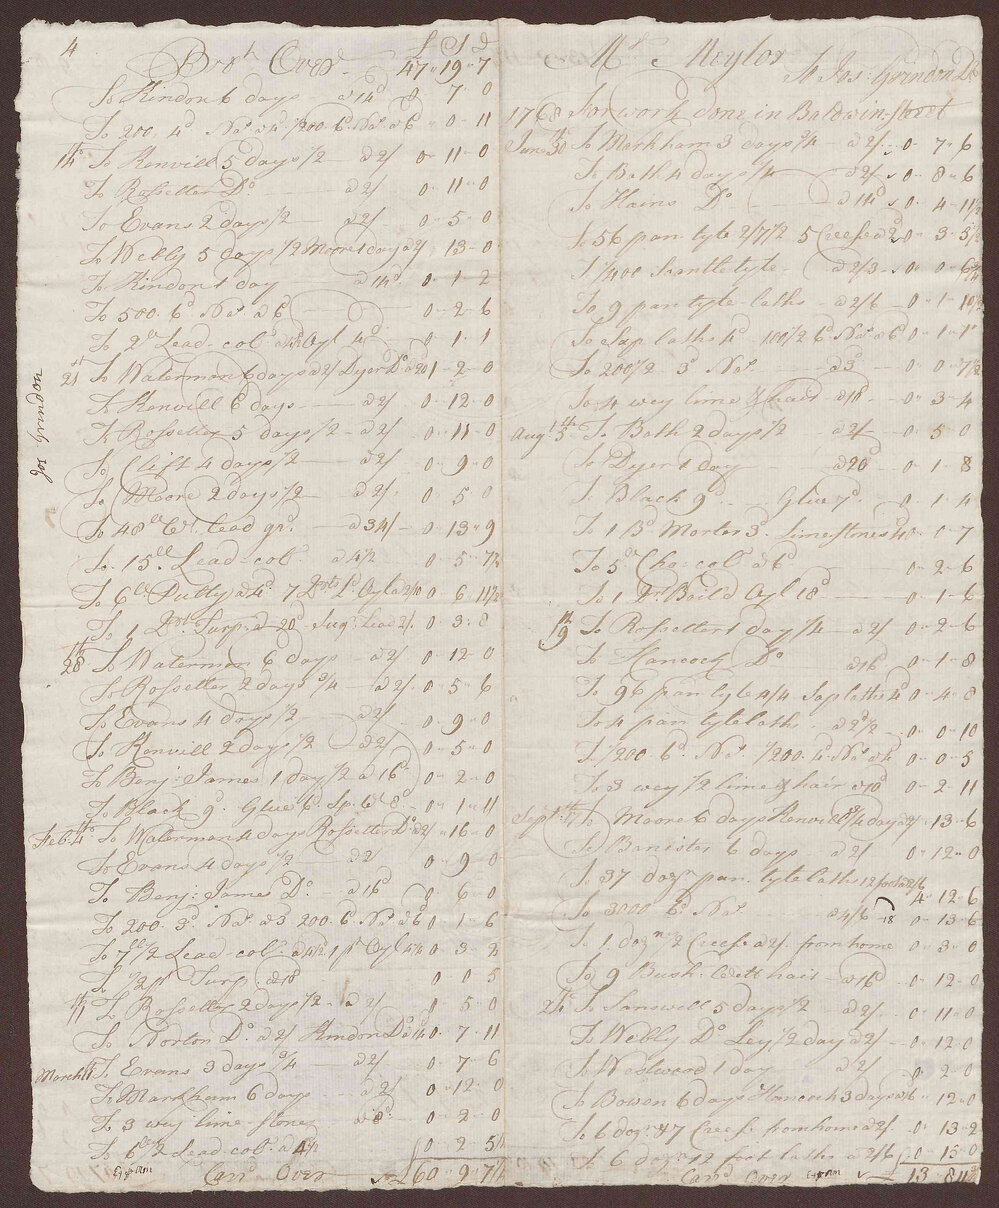 4
£ S d
Brot Over 47 " 19 " 7
To Kindon 6 days a 14d 0 7 0
To 200. 4d Nas a 4d 1/200. 6d Nas a 6d 0 - 0 - 11
14th To Kenvill 5 days 1/2 - a 2/ 0 - 11 - 0
To Rosseter Do a 2/ 0 - 11 - 0
To Evans 2 days 1/2 - a 2/ 0 - 5 - 0
To Webly 5 days 1/2 Moore 1 day a 2/ 13 - 0
To Kindon 1 day a 14d 0 - 1 - 2
To 500. 6d Nas a 6d 0 - 2 - 6
To 2lb Lead-col: Oyl 4d 0 - 1 - 1
21st To Waterman 6 days a 2/ Dyer Do a 20 1 - 2 - 0
To Kenvill 6 days - a 2/ 0 - 12 - 0
To Rosseter 5 days 1/2 - a 2/ 0 - 11 - 0
To Clift 4 days 1/2 - a 2/ 0 - 9 - 0
To Moore 2 days 1/2 - a 2/ 0 - 5 0
To 48lb Wt. lead grd. - a 34/ - 0 - 13 - 9
To 15lb Lead-col a 4 1/2 - 0 - 5 - 7 1/2
To 6lb Putty a 4d. 7 Oyl a 2/10 0 6 11 1/2
To 1 Turp: a 20d Sug: Lead 2/. 0 - 3 - 8
28th To Waterman 6 days - a 2/ 0 - 12 - 0
To Rosseter 2 days 3/4 - a 2/ 0 - 5 - 6
To Evans 4 days 1/2 - a 2/ 0 - 9 - 0
To Kenvill 2 days 1/2 - a 2/ 0 - 5 - 0
To Benj: James 1 day 1/2 a 16d 0 - 2 - 0
To Black 9d. Glue 6d. Sp. Wt 8d - 0 - 1 - 11
Feb: 4th To Waterman 4 days Rosseter Do a 2/ - 16 - 0
To Evans 4 days 1/2 - a 2/ 0 - 9 - 0
To Benj: James Do - a 16d 0 6 - 0
To 200. 3d. Nas a 3 200. 6d Nas a 6d 0 - 1 - 6
To 7lb 1/2 Lead-col: a 4 1/2 1 pt Oyl 4 1/2 0 - 3 - 2
To 1/2 pt Turp: a 10d 0 0 5
11th To Rosseter 2 days 1/2 - a 2/ 0 - 5 - 0
To Norton Do a 2/ Kindon Do a 14d 0 - 7 - 11
March 11th To Evans 3 days 3/4 - a 2/ 0 - 7 - 6
To Markham 6 days - a 2/ 0 - 12 - 0
To 3 wey lime-stones a 8d 0 - 2 - 0
To 6lb 1/2 Lead col: a 4 1/2 0 2 5 1/4
Card Over £60 " 9 " 7 1/4
Exam
Jos Grindon
Mr Meyler
To Jos: Grindon Dr
1768 For work done in Baldwin-street
June 30 To Markham 3 days 3/4 - a 2/ - 0 - 7 - 6
To Bath 4 days 1/4 a 2/ 0 - 8 - 6
To Hains Do a 14d 0 - 4 - 11 1/2
To 56 pan tyle 2/7 1/2 5 Creese a 2d 0 - 3 - 5 1/2
To 1/400 tyle - a 2/3 - 0 - 0 - 6 3/4
To 9 pan tyle-laths - a 2/6 - 0 - 1 - 10 1/2
To Sap laths 4d 100 1/2 6d Nas a 6d 0 - 1 - 1
To 200 1/2 3d Nas a 3d 0 - 0 - 7 1/2
To 4 wey lime & hair a 10d - 0 - 3 - 4
Augt 5th To Bath 2 days 1/2 - a 2/ - 0 - 5 - 0
To Dyer 1 day a 20d 0 - 1 - 8
To Black 9d - Glue 7d. - 0 - 1 - 4
To 1 Bd Morter 3d. Limestones 4d 0 - 0 - 7
To 5lb Cho: col: a 6d 0 - 2 - 6
To 1 Qt Boild Oyl 18d 0 - 1 - 6
19th To Rosseter 1 day 1/4 - a 2/ 0 - 2 - 6
To Hancock Do a 16d 0 - 1 - 8
To 96 pan tyle 4/4 Sap laths 4d 0 - 4 - 8
To 4 pan tyle laths - a 2d 1/2 0 - 0 - 10
To 1/200. 6d. Nas. 1/200. 4d. Nas a 4 0 - 0 - 5
To 3 wey 1/2 lime & hair a 10d 0 - 2 - 11
Septr. 17th To Moore 6 days Kenvill 3/4 day a 2/ - 13 - 6
To Banister 6 days a 2/ 0 - 12 - 0
To 37 dozn. pan-tyle laths 12 foot a 2/6 4 - 12 - 6
To 3000 6d Nas a 4/6 18 0 - 13 - 6
To 1 dozn 2 Creese a 2/. from home 0 - 3 - 0
To 9 Bush: hair - a 16d 0 - 12 - 0
24th To Sanswill 5 days 1/2 - a 2/. - 0 - 11 - 0
To Webly Do Ley 1/2 day a 2/ - 0 - 12 - 0
To Westword 1 day a 2/ 0 - 2 - 0
To Bowen 6 days Hancock 3 days a 16 - 12 - 0
To 6 dozn & 7 Creese from home a 2/. - 0 - 13 - 2
To 6 dozn 12 foot laths a 2/6 0 - 15 - 0
Card Over £ 13 - 8 11 3/4
Exam